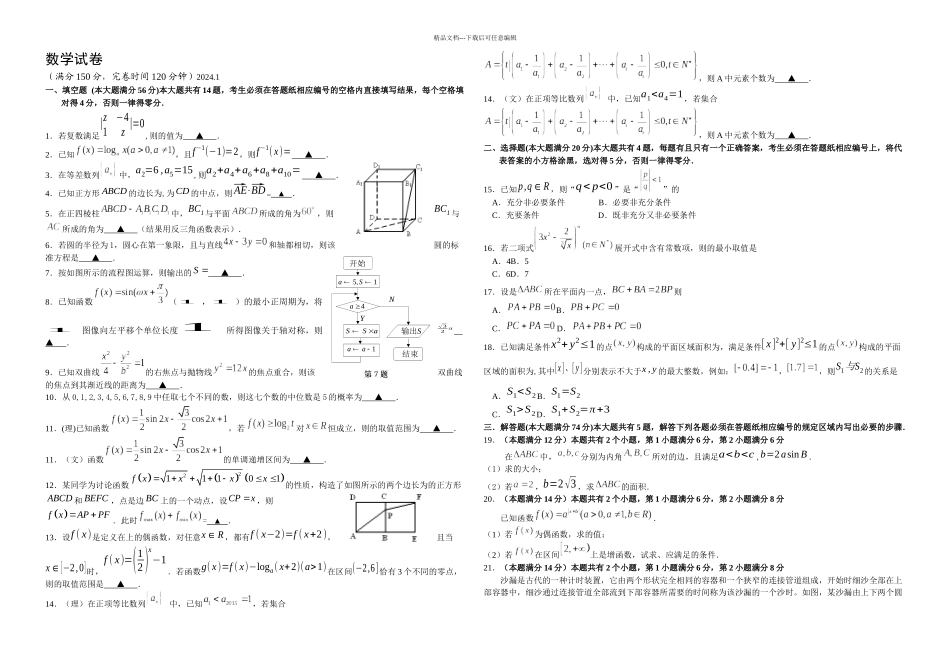 精品文档---下载后可任意编辑
数学试卷
（满分 150 分，完卷时间 120 分钟）2024.1
一、填空题 (本大题满分 56 分)本大题共有 14 题，考生必须在答题纸相应编号的空格内直接填写结果，每个空格填
对得 4 分，否则一律得零分．
1．若复数满足|z −4; 1 z|=0，则的值为 ▲ ．
2．已知 f(x)=logₐx(a>0,a≠1)，且f⁻¹(−1)=2，则f⁻¹(x)= ▲ ．
3．在等差数列{aₙ}中，a₂=6，a₅=15，则a₂+a₄+a₆+a₈+a₁₀= ▲ ．
4．已知正方形 ABCD 的边长为,为 CD 的中点，则AE·BD= ▲ ．
5．在正四棱柱ABCD−A₁B₁C₁D₁中，BC₁与平面ABCD所成的角为60°，则BC₁与
AC所成的角为 ▲ （结果用反三角函数表示）．
6．若圆的半径为 1，圆心在第一象限，且与直线4x−3y=0和轴都相切，则该圆的标
准方程是 ▲ ．
7．按如图所示的流程图运算，则输出的 S = ▲ ．
8．已知函数 f(x)=sin(ωx+π/3)（ ， ）的最小正周期为，将
图像向左平移个单位长度 所得图像关于轴对称，则
▲ ．
9．已知双曲线x²/4−y²/b²=1的右焦点与抛物线y²=12x的焦点重合，则该双曲线
的焦点到其渐近线的距离为 ▲ ．
10．从 0,1,2,3,4,5,6,7,8,9 中任取七个不同的数，则这七个数的中位数是 5 的概率为 ▲ ．
11．(理)已知函数f(x)=1/2 sin2x−√3/2 cos2x+1，若f(x)≥log₂t对x∈R恒成立，则的取值范围为 ▲ ．
11．（文）函数f(x)=1/2 sin2x−√3/2 cos2x+1的单调递增区间为 ▲ ．
12．某同学为讨论函数f(x)=√(1+x²)+√(1+(1−x)²)(0≤x≤1)的性质，构造了如图所示的两个边长为的正方形
ABCD 和 BEFC，点是边 BC 上的一个动点，设CP=x，则
f(x)=AP+PF．此时fmax(x)+fmin(x)= ▲ ．
13．设f(x)是定义在上的偶函数，对任意x∈R，都有f(x−2)=f(x+2)，且当
x∈[−2,0]时，f(x)=(1/2)ˣ−1．若函数g(x)=f(x)−logₐ(x+2)(a>1)在区间(−2,6]恰有 3 个不同的零点，
则的取值范围是 ▲ ．
14．（理）在正项等比数列{aₙ}中，已知a₁<a₂₀₁₅=1，若集合
D₁
C₁
A₁
B₁
D
C
A
B
开始
a←5,S←1
a≥4
N
Y
S←S×a
输出S
a←a−1
结束
第 7 题
D C F
P
A B E
A={t|(a₁−1/a₁)+(a₂−1/a₂)+⋯+(aₜ−1/aₜ)≤0,t∈N*}，则 A 中元素个数为 ▲ ．
14．（文）在正项等比数列{aₙ}中，已知a₁<a₄=1，若集合
A={t|(a₁−1/a₁)+(a₂−1/a₂)+⋯+(aₜ−1/aₜ)≤0,t∈N*}，则 A 中元素个数为 ▲ ．
二、选择题(本大题满分 20 分)本大题共有 4 题，每题有且只有一个正确答案，考生必须在答题纸相应编号上，将代
表答案的小方格涂黑，选对得 5 分，否则一律得零分．
15．已知p,q∈R，则“q<p<0”是“|p/q|<1”的
A．充分非必要条件 B．必要非充分条件
C．充要条件 D．既非充分又非必要条件
16．若二项式(3x²−2/∛x)ⁿ(n∈N*)展开式中含有常数项，则的最小取值是
A．4B．5
C．6D．7
17．设是△ABC所在平面内一点，BC+BA=2BP则
A．PA+PB=0B．PB+PC=0
C．PC+PA=0D．PA+PB+PC=0
18．已知满足条件x²+y²≤1的点(x,y)构成的平面区域面积为，满足条件[x]²+[y]²≤1的点(x,y)构成的平面
区域的面积为,其中[x]、[y]分别表示不大于x,y的最大整数，例如：[−0.4]=−1，[1.7]=1，则S₁与S₂的关系是
A．S₁<S₂B．S₁=S₂
C．S₁>S₂D．S₁+S₂=π+3
三．解答题(本大题满分 74 分)本大题共有 5 题，解答下列各题必须在答题纸相应编号的规定区域内写出必要的步骤．
19．（本题满分 12 分）本题共有 2 个小题，第 1 小题满分 6 分，第 2 小题满分 6 分
在△ABC中，a,b,c分别为内角A,B,C所对的边，且满足a<b<c，b=2asinB．
（1）求的大小；
（2）若a=2，b=2√3，求△ABC的面积．
20．（本题满分 14 分）本题共有 2 个小题，第 1 小题满分 6 分，第 2 小题满分 8 分
已知函数f(x)=a^|x+b|(a>0,a≠1,b∈R)．
（1）若f(x)为偶函数，求的值；
（2）若f(x)在区间[2,+∞)上是增函数，试求、应满足的条件．
21．（本题满分 14 分）本题共有 2 个小题，第 1 小题满分 6 分，第 2 小题满分 8 分
沙漏是古代的一种计时装置，它由两个形状完全相同的容器和一个狭窄的连接管道组成，开始时细沙全部在上
部容器中，细沙通过连接管道全部流到下部容器所需要的时间称为该沙漏的一个沙时。如图，某沙漏由上下两个圆